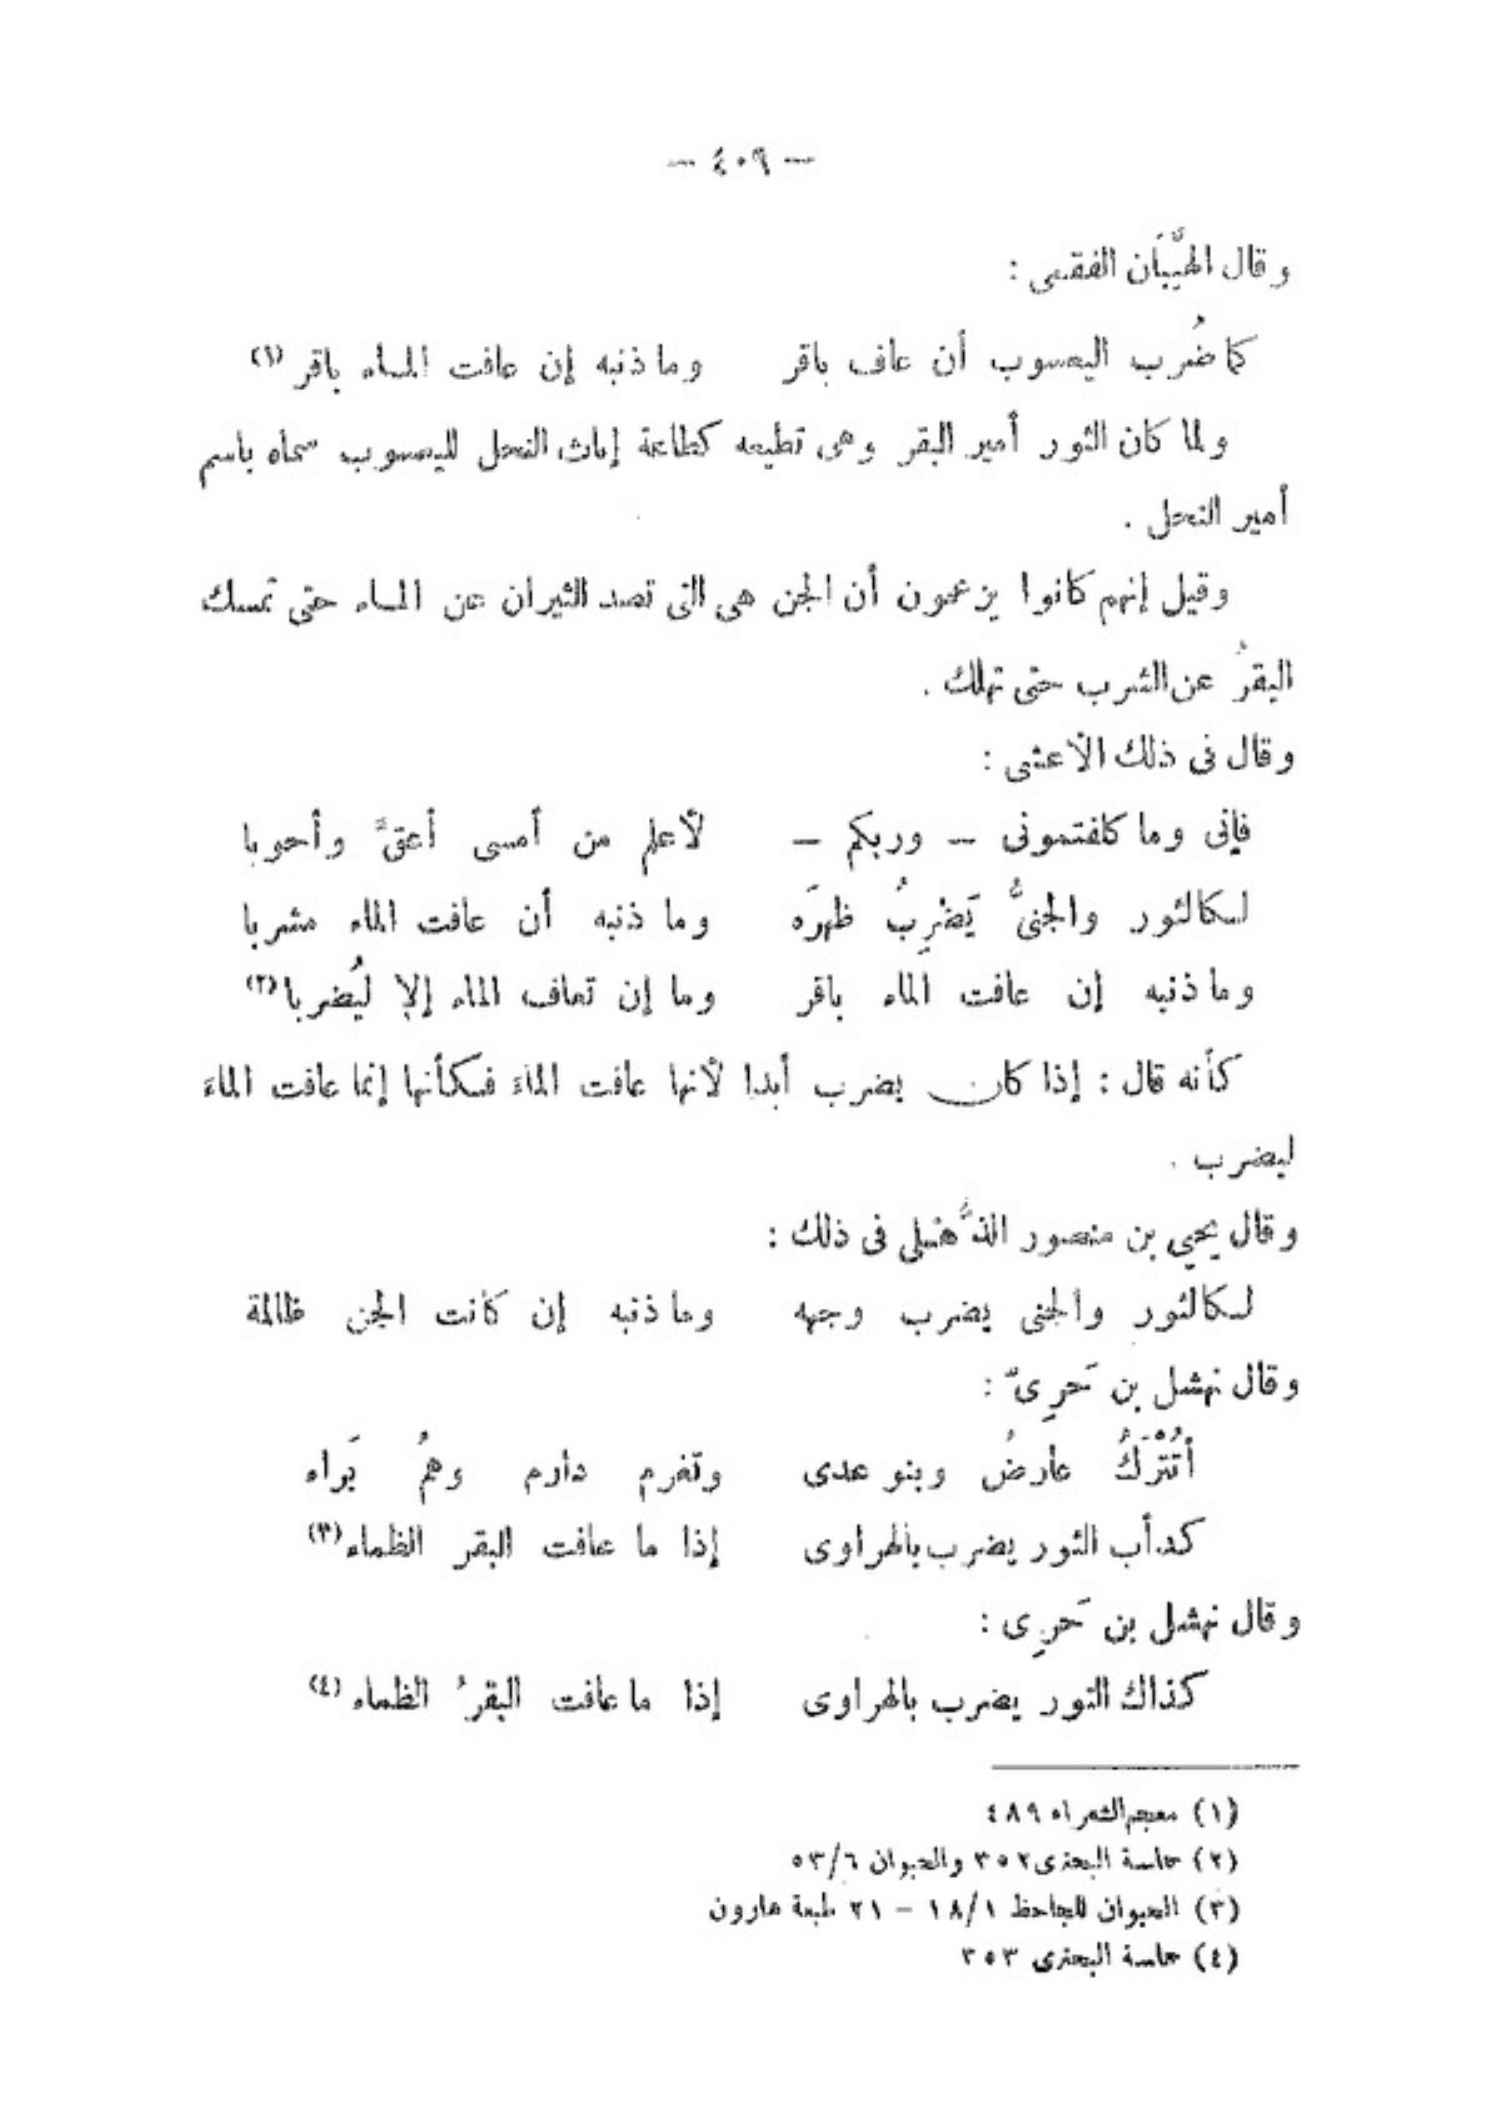 — ٤٠٩ —
وقال الهَيَّبَان الفقسى :
كما ضُرب اليعسوب أن عاف باقر وما ذنبه إن عافت المـاء باقر (١)
ولما كان الثور أمير البقر وهى تطيعه كطاعة إناث النحل لليعسوب سماه باسم
أمير النحل .
وقيل إنهم كانوا يزعمون أن الجن هى التى تصد الثيران عن المـاء حتى تمسك
البقرُ عن الشرب حتى تهلك .
وقال فى ذلك الأعشى :
فإنى وما كلفتمونى – وربكم – لأعلم من أمسى أعقَّ وأحوبا
لـكالثور والجنىُّ يَضْرِبُ ظهرَه وما ذنبه أن عافت الماء مشربا
وما ذنبه إن عافت الماء باقر وما إن تعاف الماء إلا ليُضربا (٢)
كأنه قال : إذا كان يضرب أبدا لأنها عافت الماءَ فـكأنها إنما عافت الماءَ
ليضرب .
وقال يحيى بن منصور الذُّهْلى فى ذلك :
لـكالثور والجنى يضرب وجهه وما ذنبه إن كانت الجن ظالمة
وقال نهشل بن حَرِىّ :
أتُتْرَكُ عارضُ وبنو عدى وتغرم دارم وهمُ بَراء
كدأب الثور يضرب بالهراوى إذا ما عافت البقر الظماء (٣)
وقال نهشل بن حَرى :
كذاك الثور يضرب بالهراوى إذا ما عافت البقرُ الظماء (٤)
(١) معجم الشعراء ٤٨٩
(٢) حماسة البحترى ٣٥٢ والحيوان ٥٣/٦
(٣) الحيوان للجاحظ ١٨/١ – ٢١ طبعة هارون
(٤) حماسة البحترى ٣٥٣